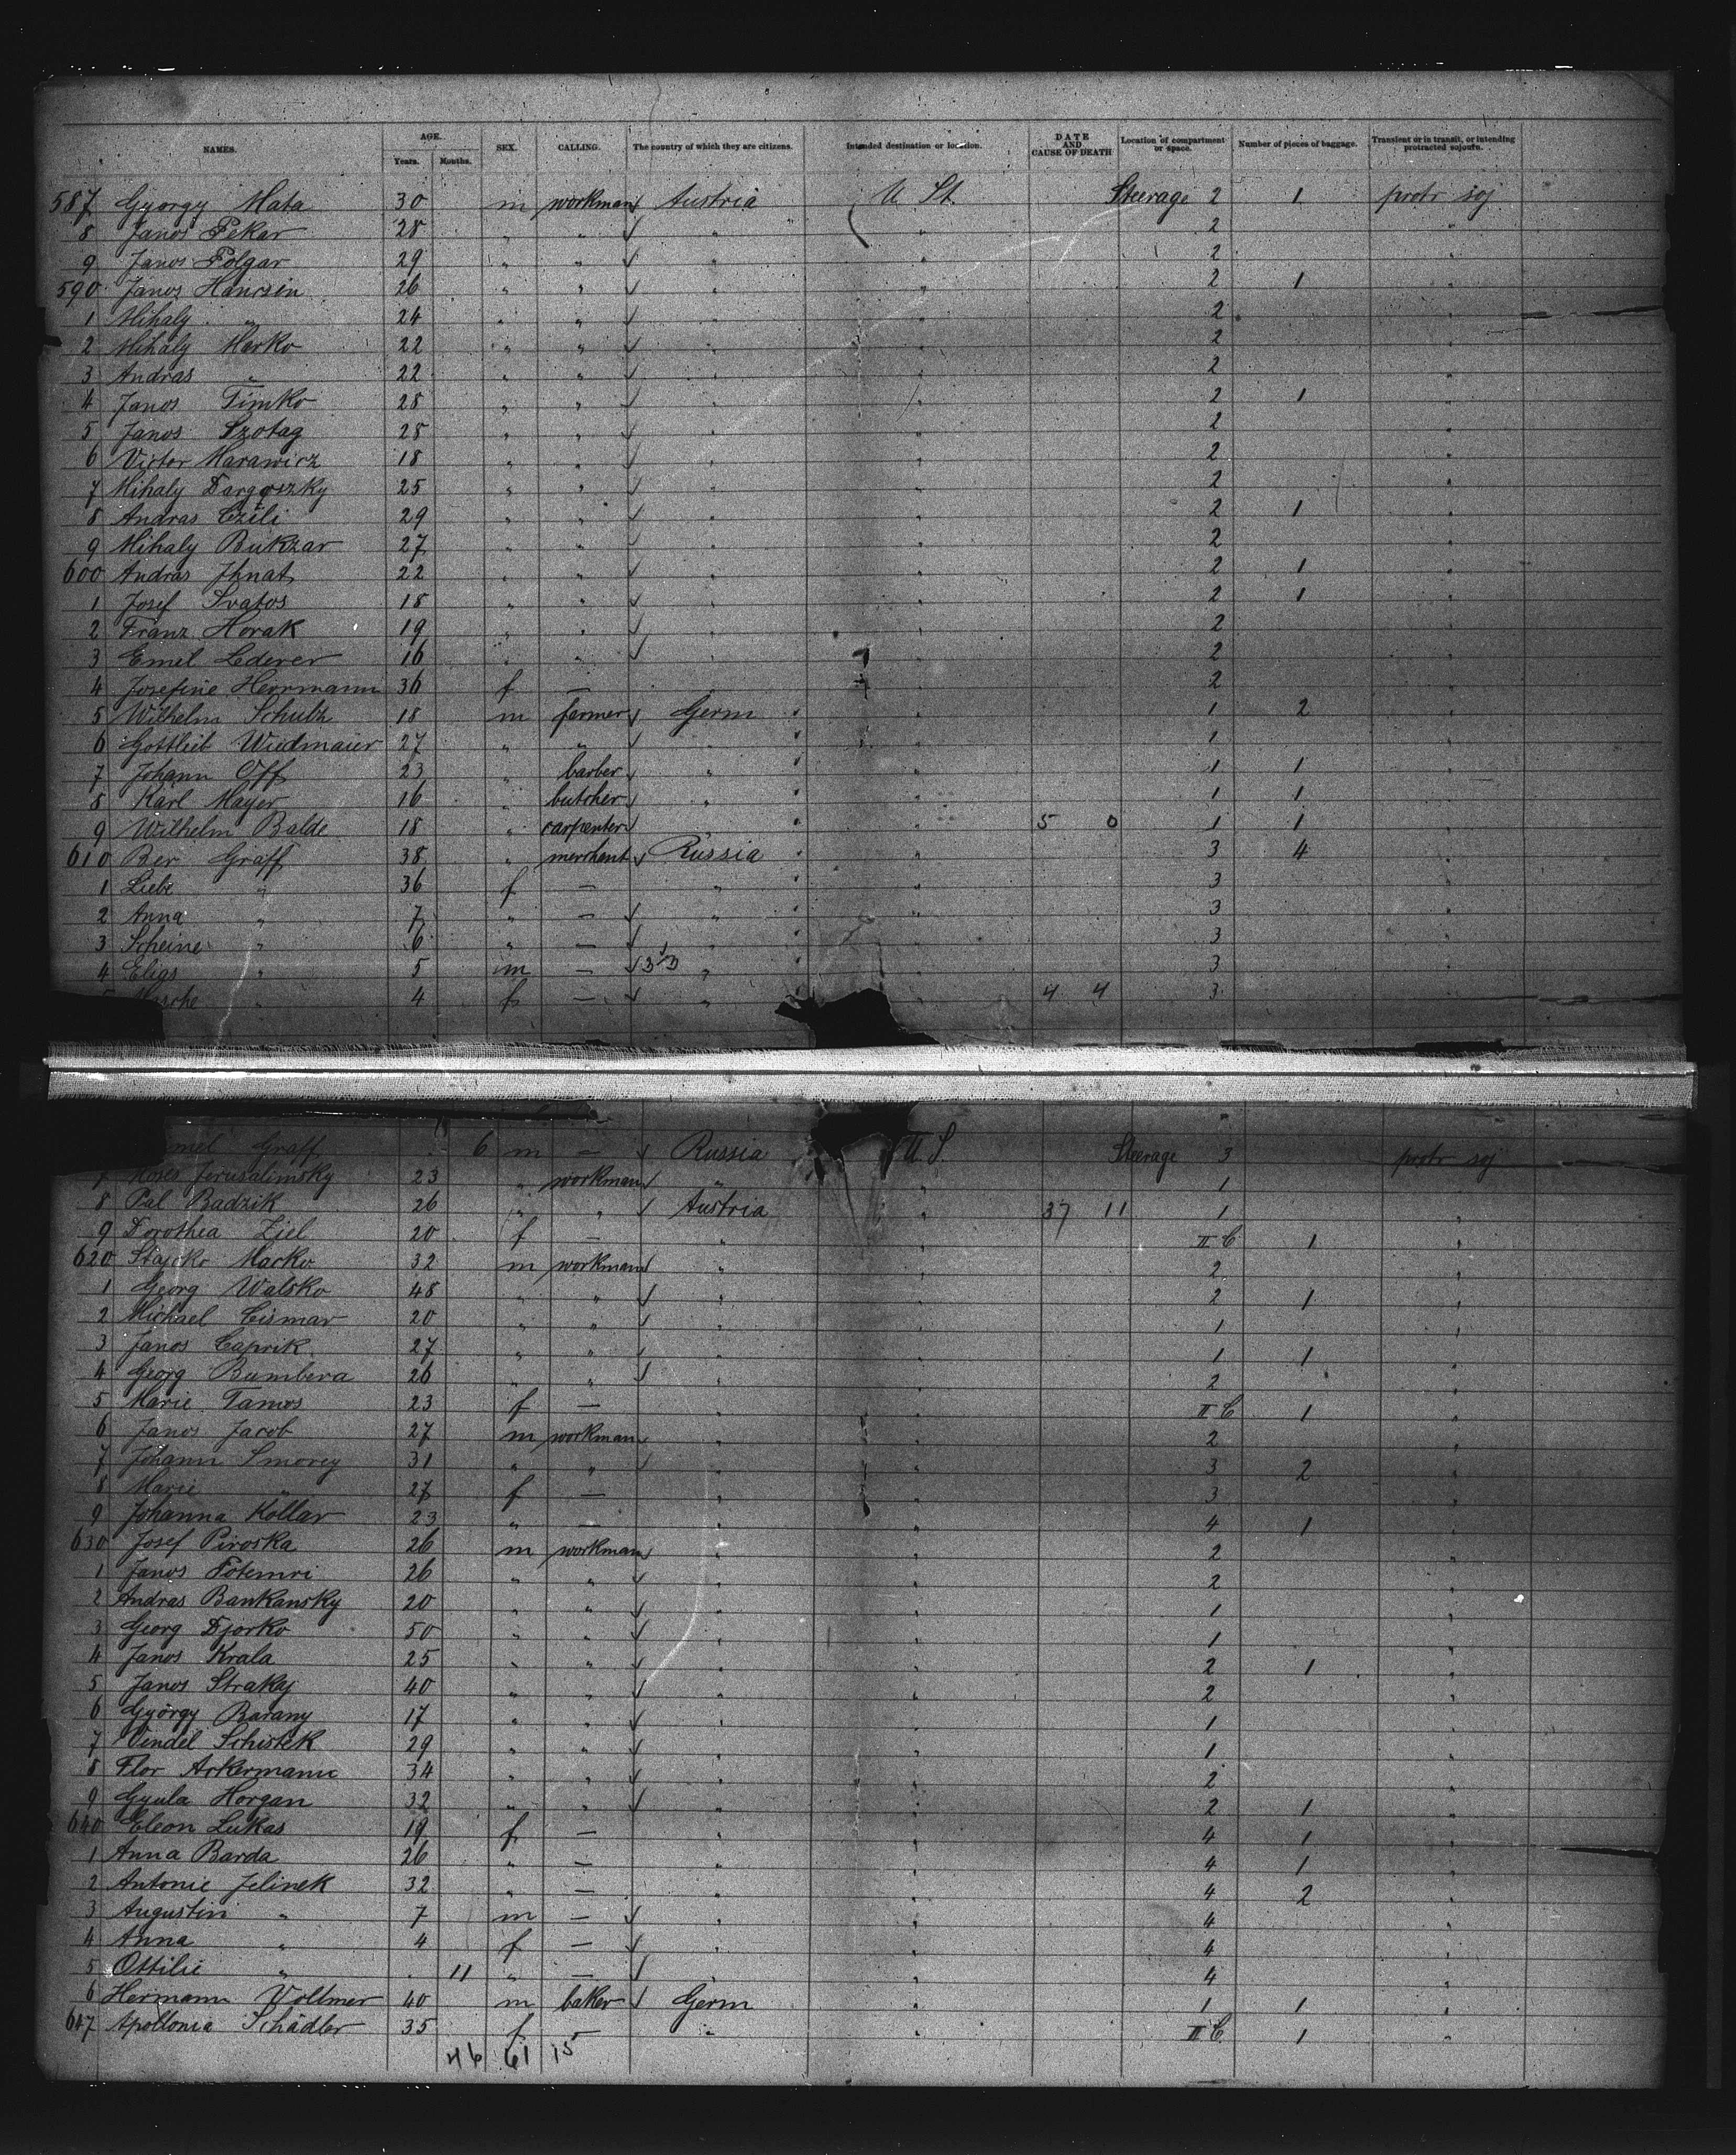 NAMES. AGE. Years. Months. SEX. CALLING. The country of which they are citizens. Intended destination or location. DATE AND CAUSE OF DEATH Location of compartment or space. Number of pieces of baggage. Transient or in transit, or intending protracted sojourn.
587 Gyorgy Mata 30 m workman Austria U St. Steerage 2 1 protr soj
8 Janos Pekar 28 " " " " 2 "
9 Janos Polgar 29 " " " " 2 "
590 Janos Hanczin 26 " " " " 2 1 "
1 Mihaly " 24 " " " " 2 "
2 Mihaly Herko 22 " " " " 2 "
3 Andras " 22 " " " " 2 "
4 Janos Timko 28 " " " " 2 1 "
5 Janos Szotag 28 " " " " 2 "
6 Victor Marawicz 18 " " " " 2 "
7 Mihaly 25 " " " " 2 "
8 Andras Czili 29 " " " " 2 1 "
9 Mihaly Bukzar 27 " " " " 2 "
600 Andras Ihnat 22 " " " " 2 1 "
1 Josef Svatos 18 " " " " 2 1 "
2 Franz Horak 19 " " " " 2 "
3 Emel Lederer 16 " " " " 2 "
4 Josefine Herrmann 36 f — " " 2 "
5 Wilhelm Schulz 18 m farmer Germ " 1 2 "
6 Gottlieb Wiedmaier 27 " " " " 1 "
7 Johann Off 23 " barber " " 1 1 "
8 Karl Mayer 16 " butcher " " 1 1 "
9 Wilhelm Balde 18 " carpenter " 5 0 1 1 "
610 Ber Graff 38 " merchant Russia " 3 4 "
1 Liebe " 36 f — " " 3 "
2 Anna " 7 " — " " 3 "
3 Scheine " 6 " — " " 3 "
4 Elias " 5 m — " " 3 "
4 f — " 4 4 3 "
Graff 6 m — Russia U.S. Steerage 3 protr soj
7 Moses Jerusalimsky 23 " workman " " 1
8 Pal Badzik 26 " " Austria " 37 11 1 "
9 Dorothea Ziel 20 f — " " II C 1 "
620 Macko 32 m workman " " 2 "
1 Georg Walsko 48 " " " " 2 1 "
2 Michael Cismar 20 " " " " 1 "
3 Janos Caprik 27 " " " " 1 1 "
4 Georg Bumbera 26 " " " " 2 "
5 Marie Tamos 23 f — " " II C 1 "
6 Janos Jacob 27 m workman " " 2 "
7 Johann Smorey 31 " " " " 3 2 "
8 Marie " 27 f — " " 3 "
9 Johanna Kollar 23 " — " " 4 1 "
630 Josef Piroska 26 m workman " " 2 "
1 Janos Fotemri 26 " " " " 2 "
2 Andras Bankansky 20 " " " " 1 "
3 Georg Djorko 50 " " " " 1 "
4 Janos Krala 25 " " " " 2 1 "
5 Janos Straky 40 " " " " 2 "
6 György Barany 17 " " " " 1 "
7 Vendel Schistek 29 " " " " 1 "
8 Flor Ackermann 34 " " " " 2 "
9 Gyula Horgan 32 " " " " 2 1 "
640 Eleon Lukas 19 f — " " 4 1 "
1 Anna Barda 26 " — " " 4 1 "
2 Antonie Jelinek 32 " — " " 4 2 "
3 Augustin " 7 m — " " 4 "
4 Anna " 4 f — " " 4 "
5 Ottilie " 11 " — " " 4 "
6 Hermann Vollmer 40 m baker Germ " 1 1 "
647 Apollonia Schädler 35 f — " " II C 1 "
46 61 15